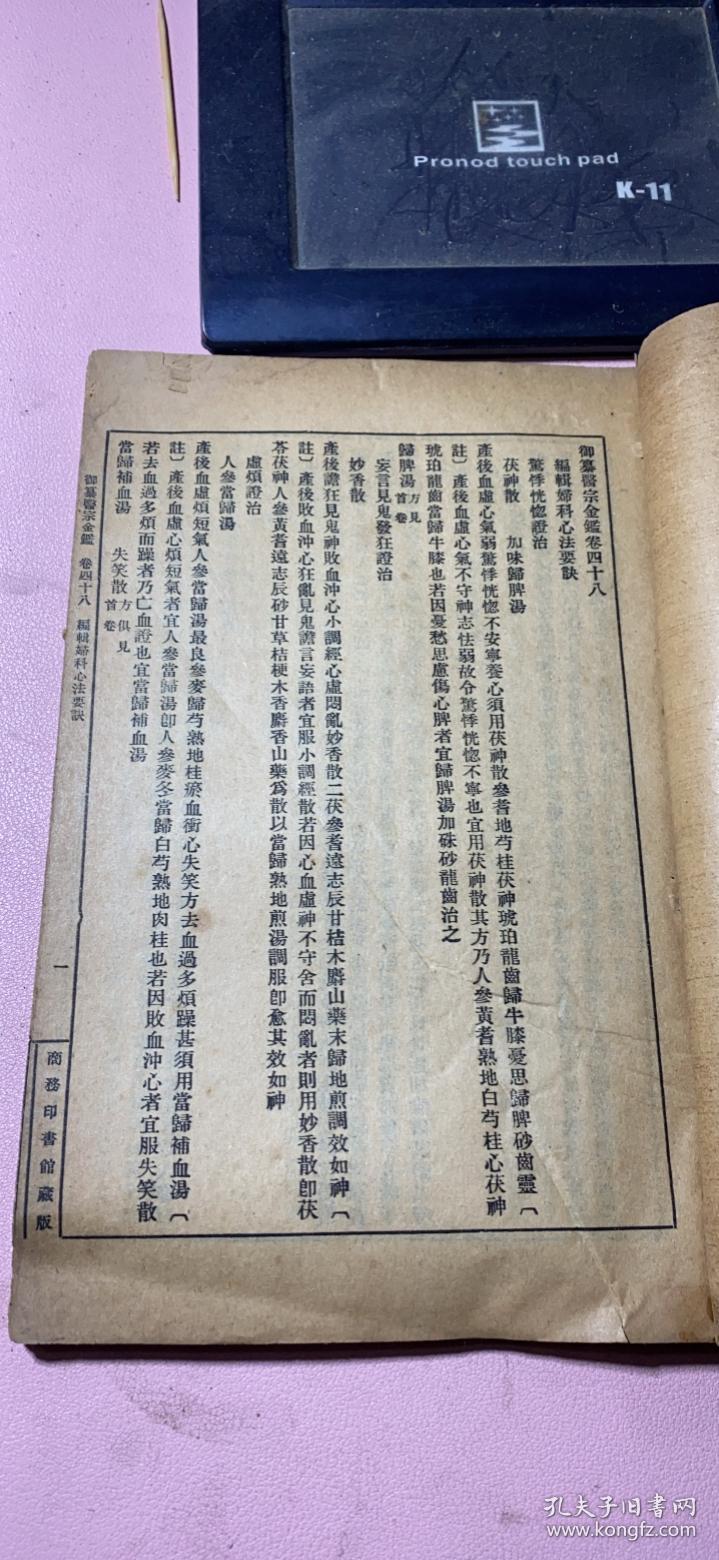 Pronod touch pad
K-11
御纂醫宗金鑑卷四十八
編輯婦科心法要訣
驚悸恍惚證治
茯神散　加味歸脾湯
產後血虛心氣弱驚悸恍惚不安寧養心須用茯神散參耆地芍桂茯神琥珀龍齒歸牛膝憂思歸脾砂齒靈〔
註〕產後血虛心氣不守神志怯弱故令驚悸恍惚不寧也宜用茯神散其方乃人參黃耆熟地白芍桂心茯神
琥珀龍齒當歸牛膝也若因憂愁思慮傷心脾者宜歸脾湯加硃砂龍齒治之
歸脾湯方見首卷
妄言見鬼發狂證治
妙香散
產後譫狂見鬼神敗血沖心小調經心虛悶亂妙香散二茯參耆遠志辰甘桔木麝山藥末歸地煎調效如神〔
註〕產後敗血沖心狂亂見鬼譫言妄語者宜服小調經散若因心血虛神不守舍而悶亂者則用妙香散卽茯
苓茯神人參黃耆遠志辰砂甘草桔梗木香麝香山藥爲散以當歸熟地煎湯調服卽愈其效如神
虛煩證治
人參當歸湯
產後血虛煩短氣人參當歸湯最良參麥歸芍熟地桂瘀血衝心失笑方去血過多煩躁甚須用當歸補血湯〔
註〕產後血虛心煩短氣者宜人參當歸湯卽人參麥冬當歸白芍熟地肉桂也若因敗血沖心者宜服失笑散
若去血過多煩而躁者乃亡血證也宜當歸補血湯
當歸補血湯　失笑散方俱見首卷
御纂醫宗金鑑　卷四十八　編輯婦科心法要訣
一
商務印書館藏版
孔夫子旧书网
www.kongfz.com